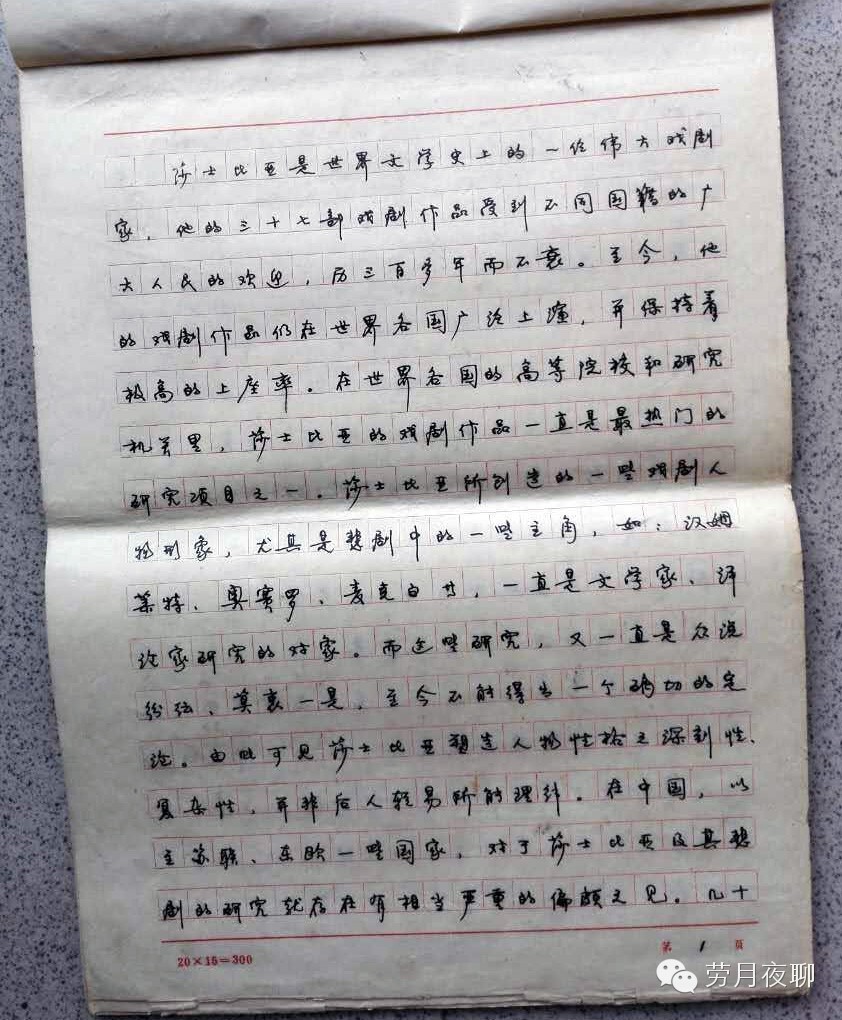 莎士比亚是世界文学史上的一位伟大戏剧
家，他的三十七部戏剧作品受到不同国籍的广
大人民的欢迎，历三百多年而不衰。至今，他
的戏剧作品仍在世界各国广泛上演，并保持着
极高的上座率。在世界各国的高等院校和研究
机关里，莎士比亚的戏剧作品一直是最热门的
研究项目之一。莎士比亚所创造的一些戏剧人
物形象，尤其是悲剧中的一些主角，如：汉姆
莱特、奥赛罗、麦克白甘，一直是文学家、评
论家研究的对象。而这些研究，又一直是众说
纷纭、莫衷一是，至今不能得出一个确切的定
论。由此可见莎士比亚塑造人物性格之深刻性、
复杂性，并非后人轻易所能理纤。在中国，以
至苏联、东欧一些国家，对于莎士比亚及其悲
剧的研究就存在有相当严重的偏颇之见。几十
20×15=300
第 1 页
劳月夜聊